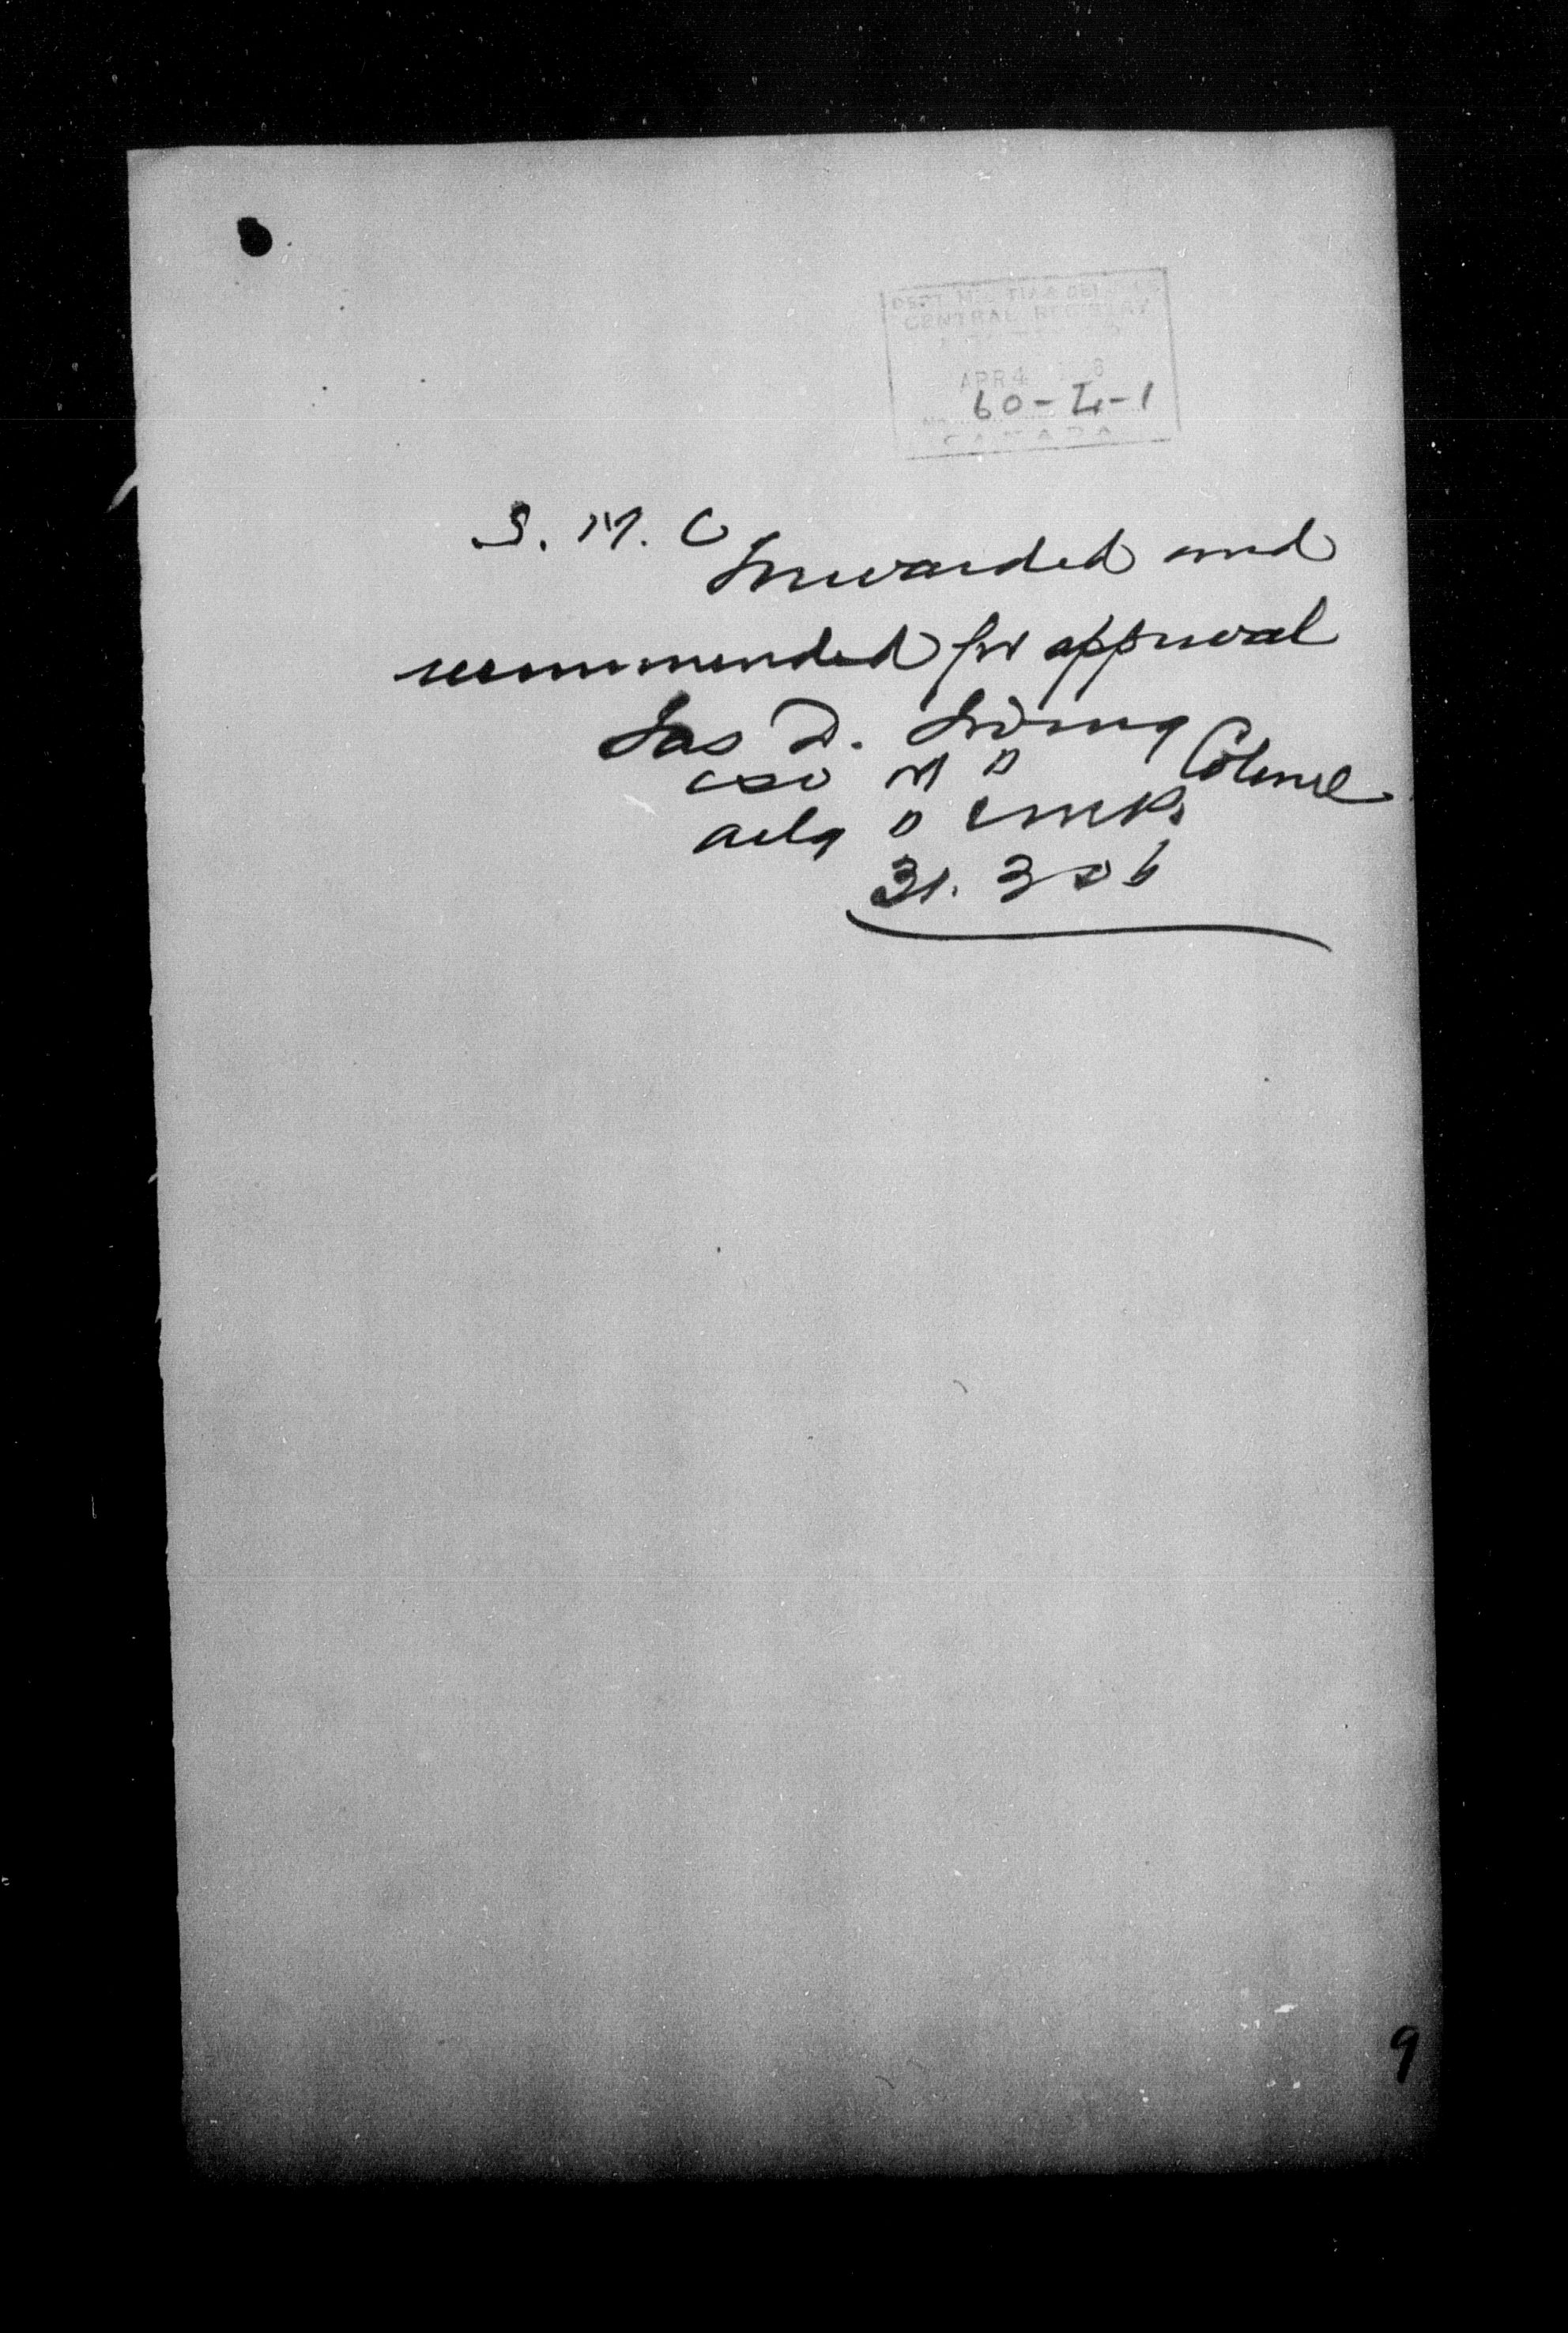 DEPT. MILITIA & DEFENCE
CENTRAL REGISTRY
APR 4
60-4-1
CANADA
S. M. C
Forwarded and
recommended for approval
Jas D. Irving
Colonel
CSO M D
actg D
31. 3 06
9